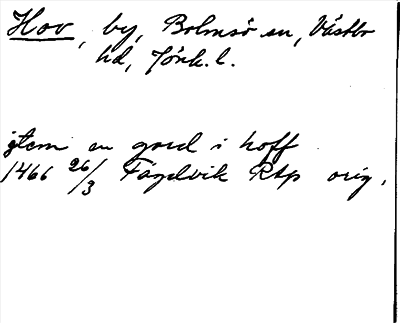 Hov, by, Bolmsö sn, Västbo
hd, Jönk. l.
jtem en gord i hoff
1466 26/3 Fågelvik Rap orig.